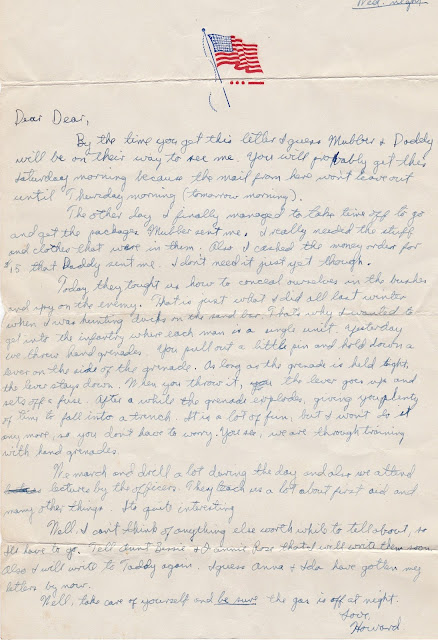 Wed. night
Dear Dear,
By the time you get this letter I guess Mubber & Daddy
will be on their way to see me. You will probably get this
Saturday morning because the mail from here won't leave out
until Thursday morning (tomorrow morning).
The other day I finally managed to take time off to go
and get the packages Mubber sent me. I really needed the stuff
and clothes that were in them. Also I cashed the money order for
$15 that Daddy sent me. I don't need it just yet though.
Today they taught us how to conceal ourselves in the bushes
and spy on the enemy. That is just what I did all last winter
when I was hunting ducks on the sand bar. That's why I wanted to
get into the infantry where each man is a single unit. Yesterday
we threw hand grenades. You pull out a little pin and hold down a
lever on the side of the grenade. As long as the grenade is held tight,
the lever stays down. When you throw it, the lever goes up and
sets off a fuse. After a while the grenade explodes, giving you plenty
of time to fall into a trench. It is a lot of fun, but I won't do it
any more, so you don't have to worry. You see, we are through training
with hand grenades.
We march and drill a lot during the day and also we attend
lectures by the officers. They teach us a lot about first aid and
many other things. Its quite interesting
Well, I can't think of anything else worth while to tell about, so
I'll have to go. Tell Aunt and Fannie Rose that I will write them soon.
Also I will write to Taddy again. I guess Anna & Ida have gotten my
letters by now.
Well, take care of yourself and be sure the gas is off at night.
Love,
Howard